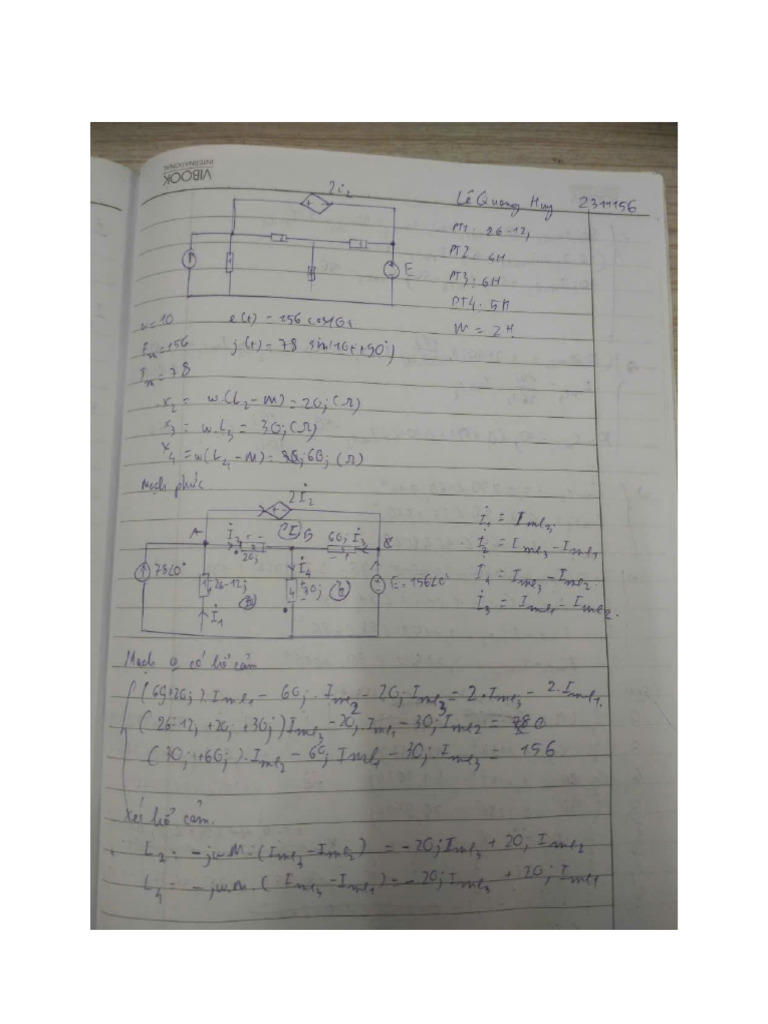 VIBOOK
INTERNATIONAL
2i₂
Lê Quang Huy 2311156
PT1: 26-12j
PT2: 4H
PT3: 6H
PT4: 5H
M = 2H
E
ω=10 e(t) = 156 cos10t
Em=156 j(t) = 78 sin(10t+90°)
Jm=78
x₂ = w.(L₂-M) = 20j(Ω)
x₃ = w.L₃ = 30j(Ω)
x₄ = w(L₄-M) = 60j(Ω)
Mạch phức
2İ₂
A
İ₂
20j
(I)
B
60j
İ₃
78∠0°
26-12j
İ₁
İ₄
30j
E=156∠0°
İ₁ = Imł₃
İ₂ = Imł₃ - Imł₁
İ₄ = Imł₃ - Imł₂
İ₃ = Imł₁ - Imł₂
Mạch có hỗ cảm
(60+20j).Imł₁ - 60j.Imł₂ - 20jImł₃ = 2.Imł₃ - 2.Imł₁
(26-12j+20j+30j)Imł₃ - 20jImł₁ - 30jImł₂ = 0
(30j+60j).Imł₂ - 60jImł₁ - 30jImł₃ = 156
Xét hỗ cảm.
L₂ = -jw.M.(Imł₃-Imł₂) = -20jImł₃ + 20jImł₂
L₄ = -jw.M.(Imł₃-Imł₁) = -20jImł₃ + 20jImł₁